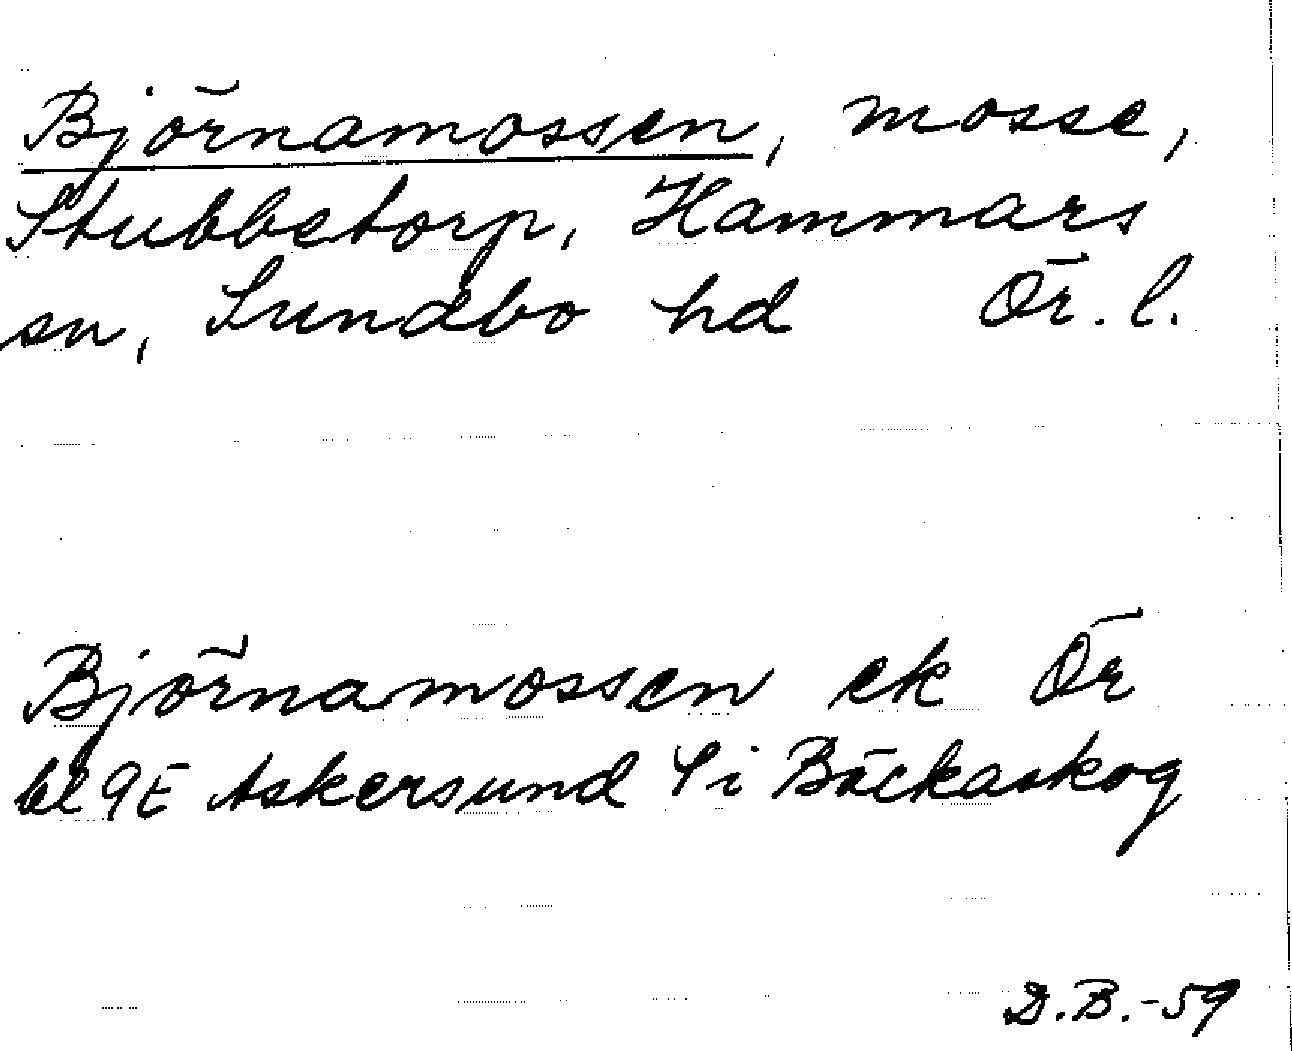 Björnamossen, mosse,
Stubbetorp, Hammars
sn, Sundbo hd Ör. l.
Björnamossen ek Ör
bl 9E Askersund S i Bäckaskog
D.B.-59